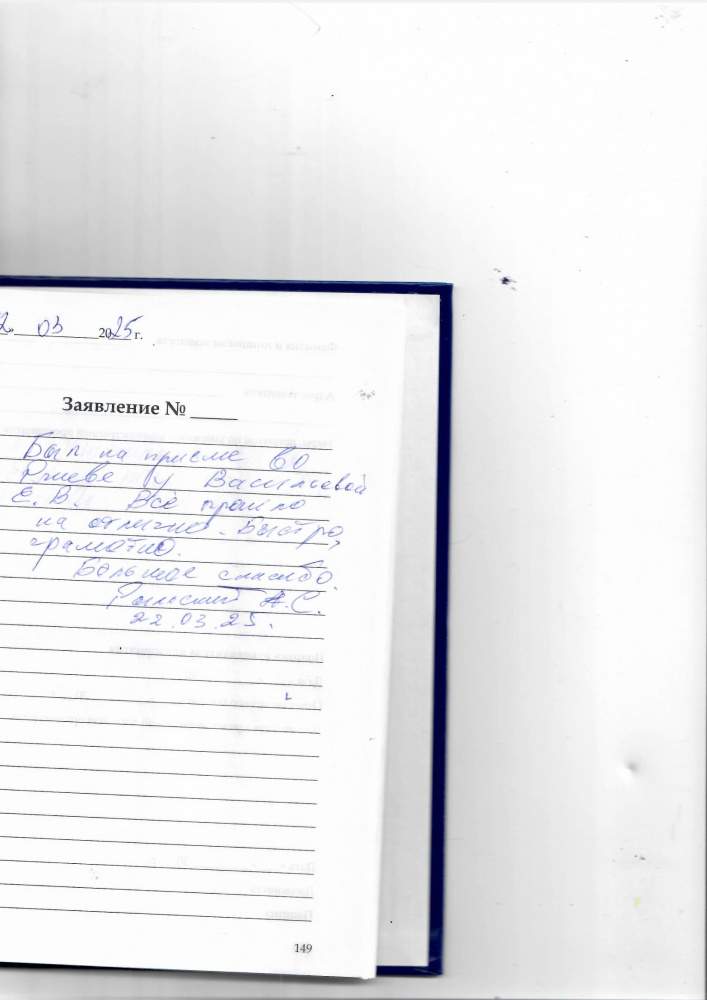 2" 03 2025 г.
Заявление № _____
Был на приеме во
Ржеве у Васильевой
Е. В. Всё прошло
на отлично. Быстро,
грамотно.
Большое спасибо.
А.С.
22.03.25.
149